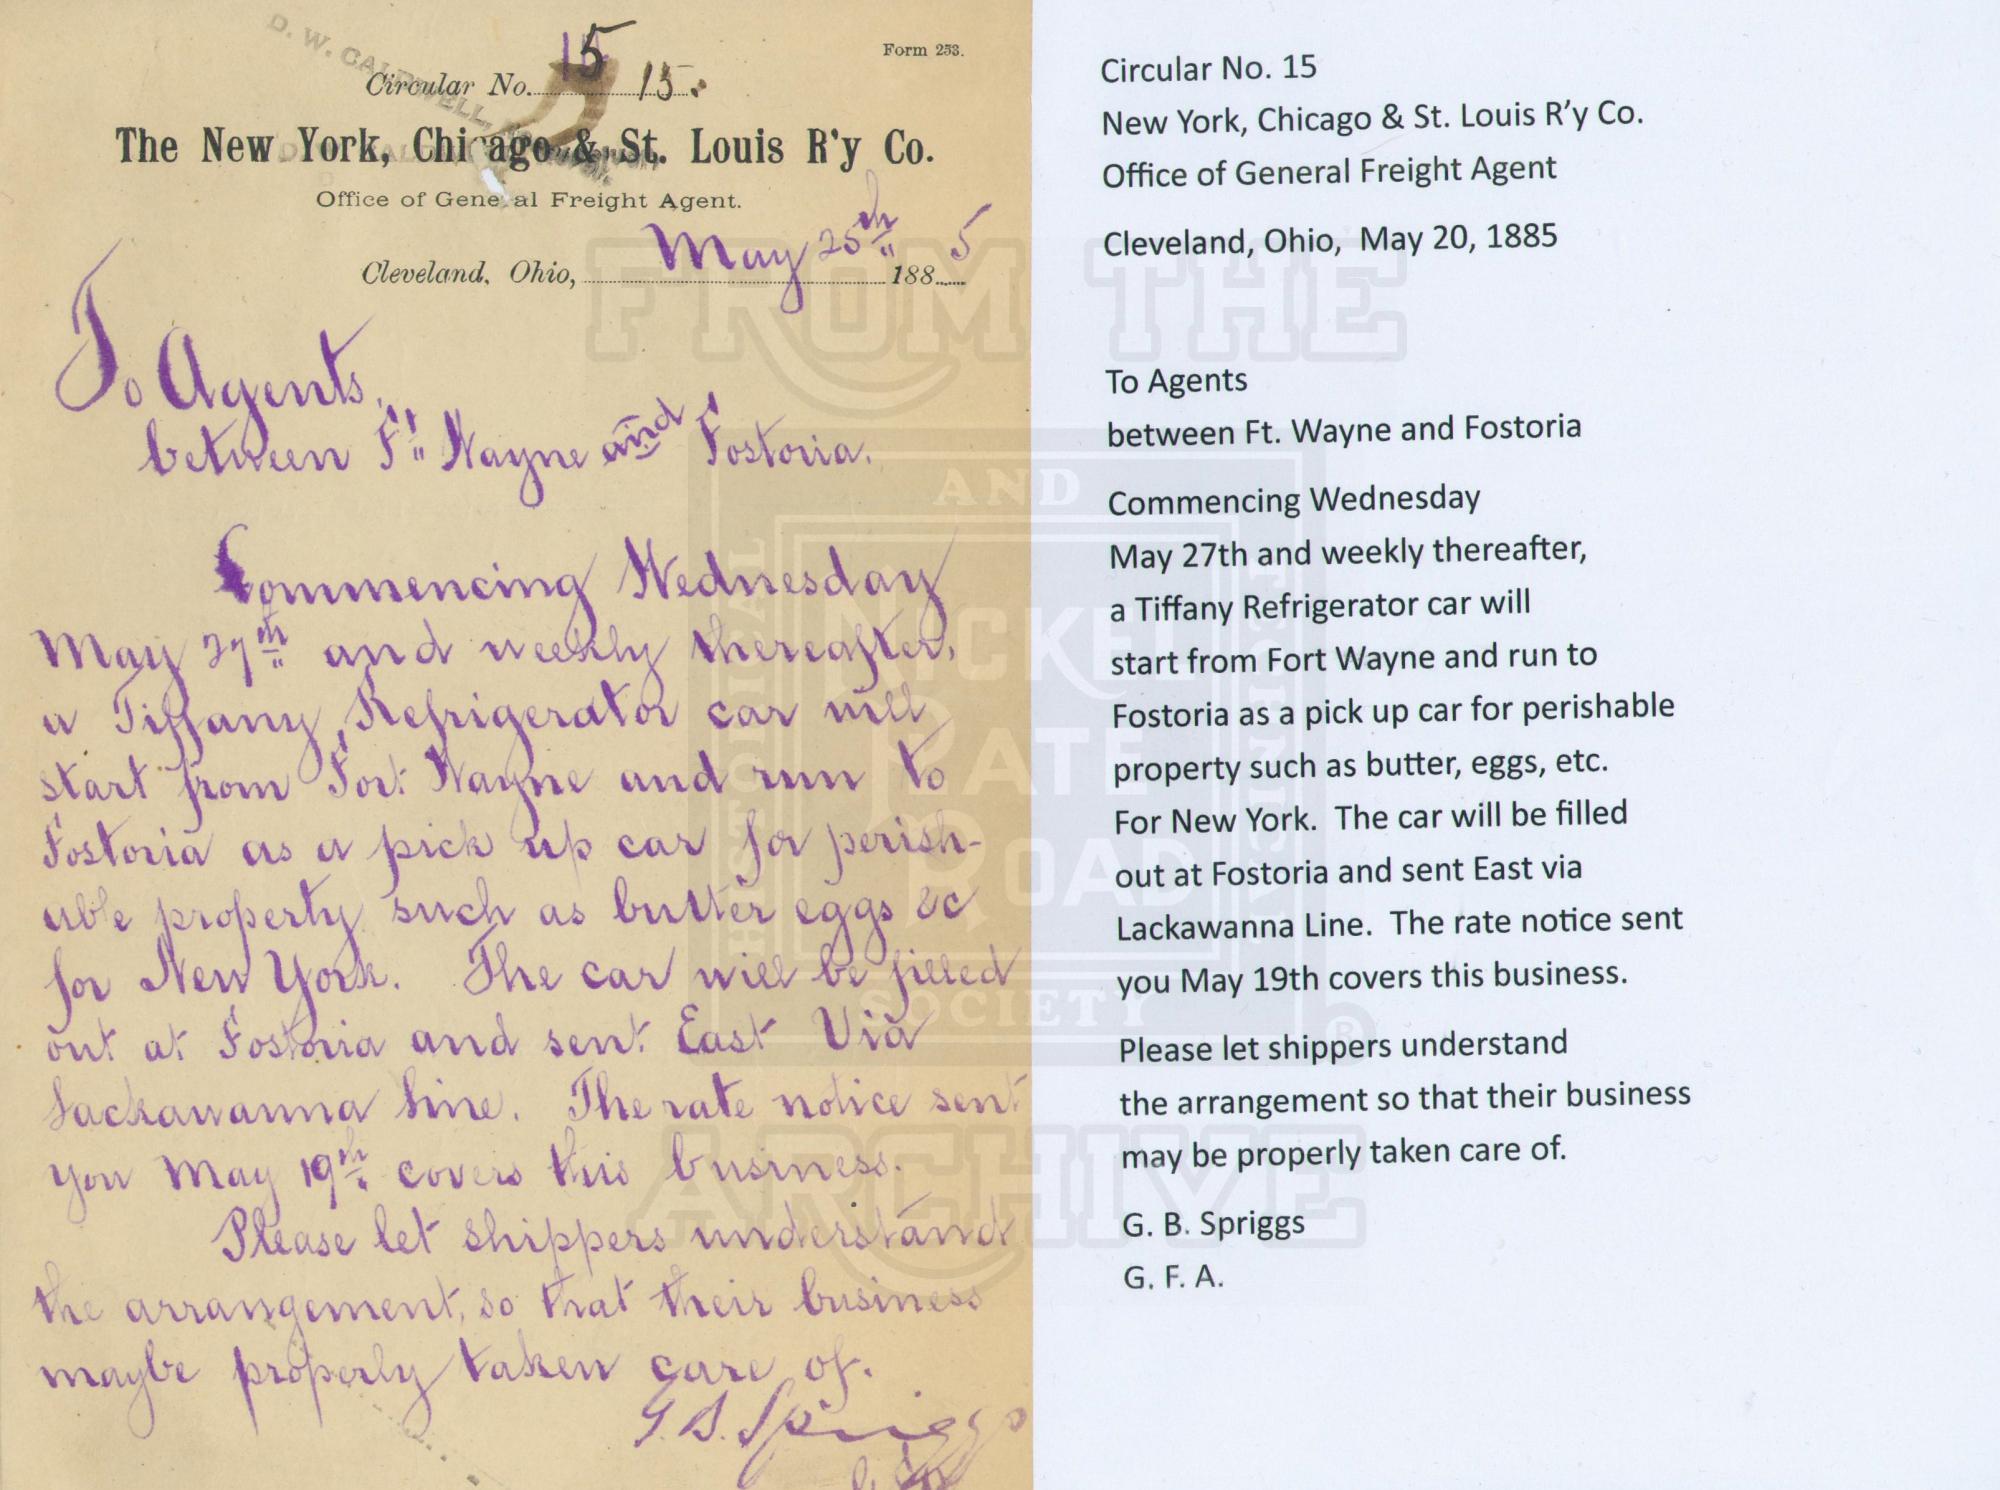 Form 253.
D. W. CALDWELL,
Circular No. 15 15.
The New York, Chicago & St. Louis R'y Co.
Office of General Freight Agent.
May 25th
Cleveland, Ohio, 1885
To Agents,
between Ft. Wayne and Fostoria.
Commencing Wednesday
May 27th and weekly thereafter,
a Tiffany Refrigerator car will
start from Fort Wayne and run to
Fostoria as a pick up car for perish-
able property such as butter eggs &c
for New York. The car will be filled
out at Fostoria and sent East Via
Lackawanna Line. The rate notice sent
you May 19th covers this business.
Please let shippers understand
the arrangement, so that their business
maybe properly taken care of.
G. B. Spriggs
Circular No. 15
New York, Chicago & St. Louis R'y Co.
Office of General Freight Agent
Cleveland, Ohio, May 20, 1885
To Agents
between Ft. Wayne and Fostoria
Commencing Wednesday
May 27th and weekly thereafter,
a Tiffany Refrigerator car will
start from Fort Wayne and run to
Fostoria as a pick up car for perishable
property such as butter, eggs, etc.
For New York. The car will be filled
out at Fostoria and sent East via
Lackawanna Line. The rate notice sent
you May 19th covers this business.
Please let shippers understand
the arrangement so that their business
may be properly taken care of.
G. B. Spriggs
G. F. A.
FROM THE
HISTORICAL
AND
TECHNICAL
NICKEL
PLATE
ROAD
SOCIETY
®
ARCHIVE